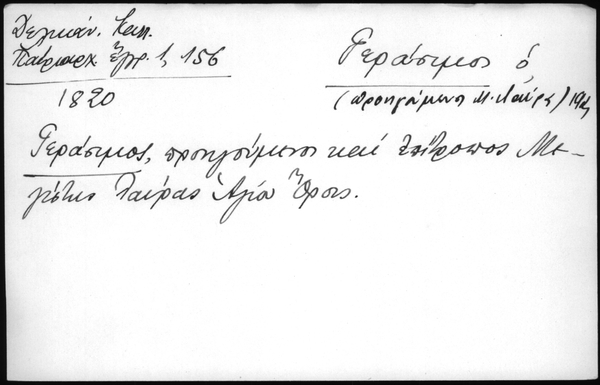 Δελικάν. Καλ.
Πατριαρχ. Ἔγγρ. 1, 156
1820
Γεράσιμος ὁ
(προηγούμενος Μ. Λαύρας)
Γεράσιμος, προηγούμενος καὶ ἐπίτροπος Με-
γίστης Λαύρας Ἁγίου Ὄρους.